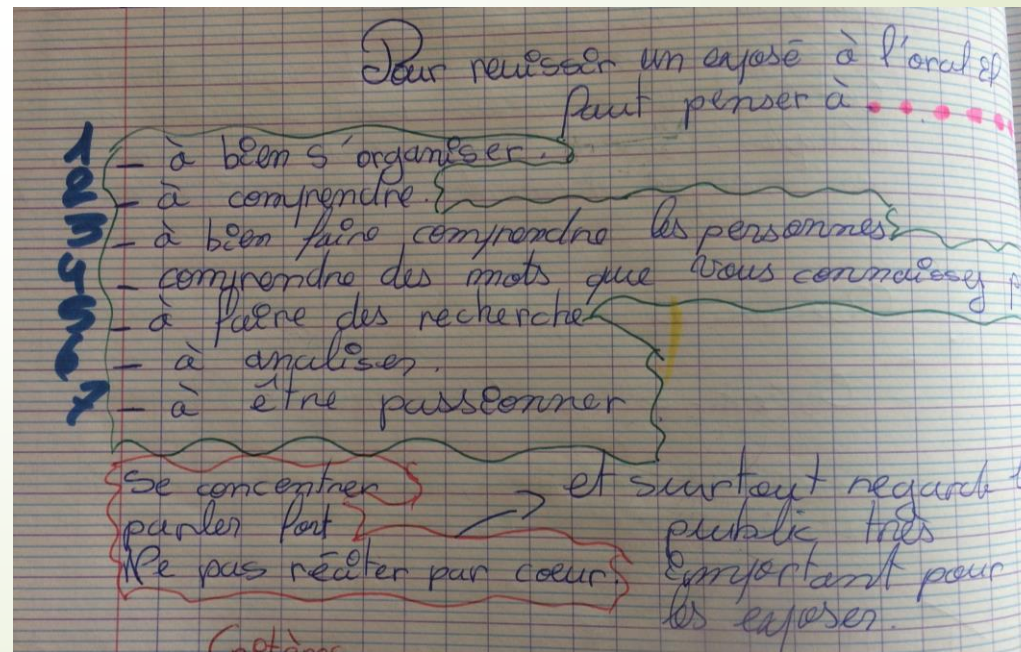 Pour reuissir un exposé à l'oral il
faut penser à .....
1 - à bien s'organiser.
2 - à comprendre.
3 - à bien faire comprendre les personnes
4 - comprendre des mots que vous connaissez
5 - à faire des recherche
6 - à analiser.
7 - à être passionner
Se concentrer
parler fort
Ne pas réciter par coeur
et surtout regardé
public très
important pour
les exposer.
Critères